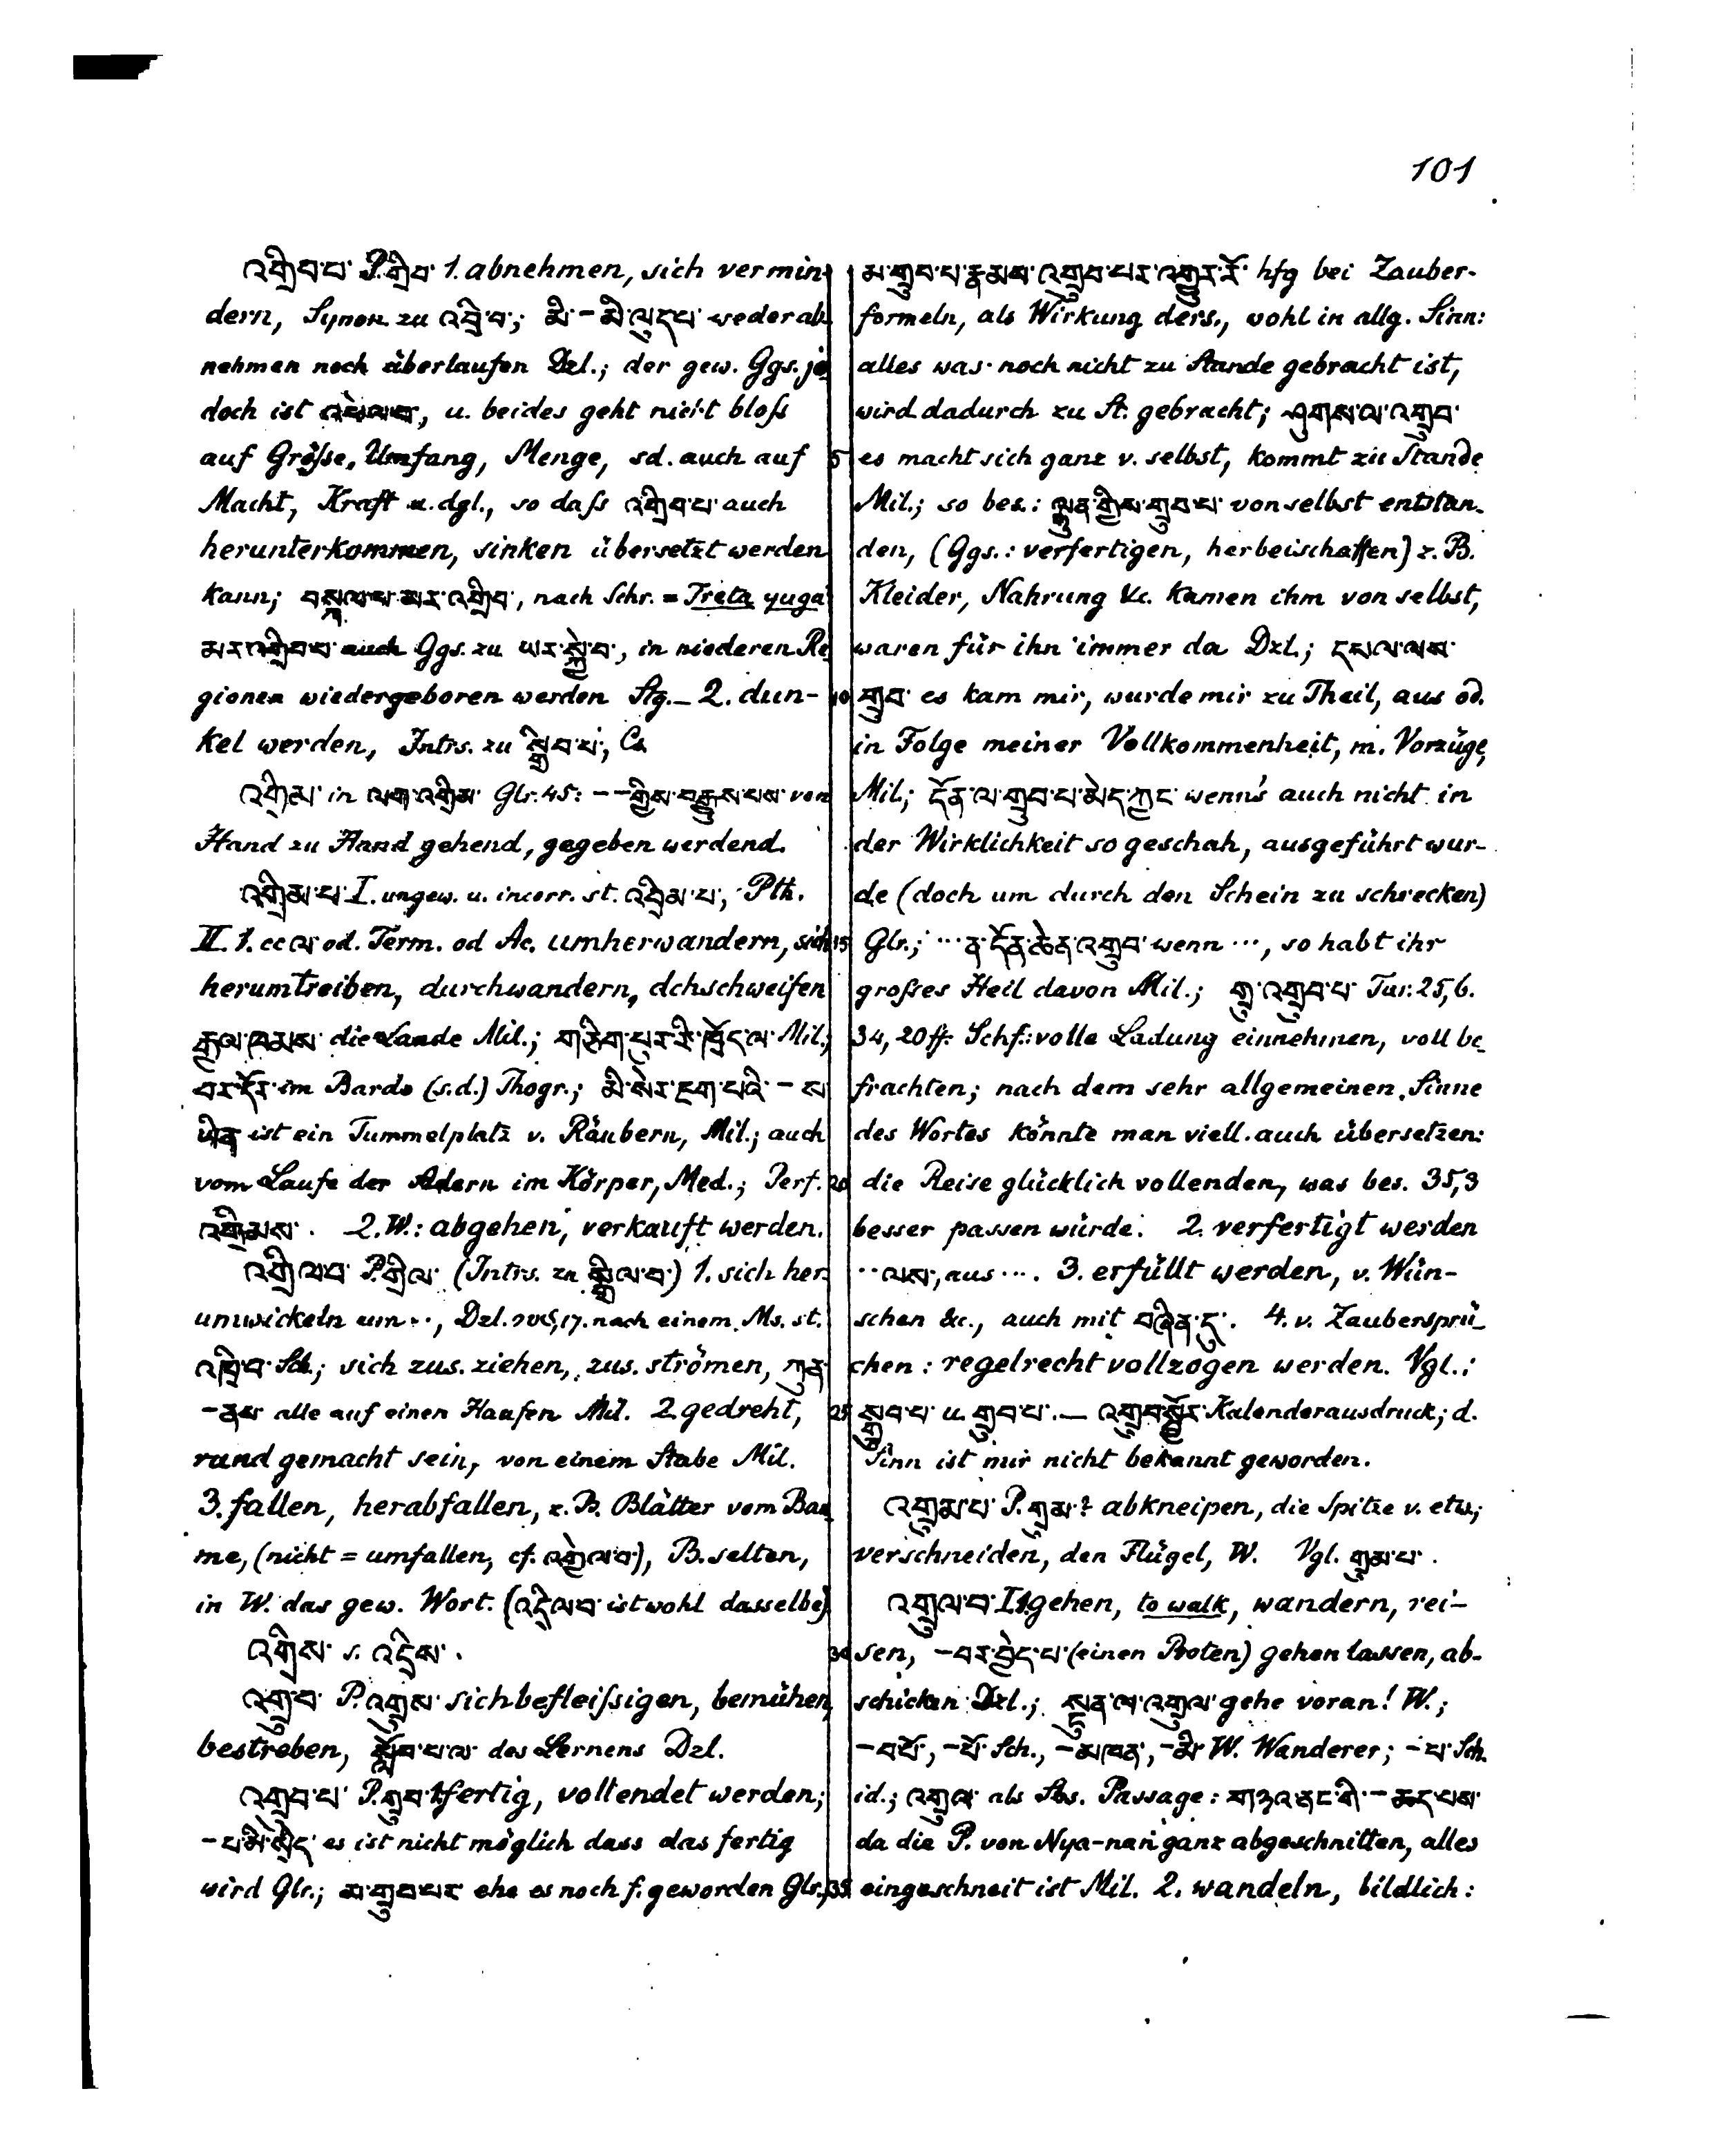 101
འགྲིབ་པ་ P. གྲིབ་ 1. abnehmen, sich vermin-
dern, Synon. zu འབྲི་བ་; མི་ – མི་ལུད་པ་ weder ab-
nehmen noch überlaufen Dzl.; der gew. Ggs. je
doch ist འཕེལ་བ་, u. beides geht nicht bloſs
auf Gröſse, Umfang, Menge, sd. auch auf
Macht, Kraft u. dgl., so daſs འགྲིབ་པ་ auch
herunterkommen, sinken übersetzt werden
kann; བསྐལ་པ་མར་འགྲིབ་, nach Schr. = Treta yuga
མར་འགྲིབ་པ་ auch Ggs. zu ཡར་སྐྱེ་བ་, in niederen Re
gionen wiedergeboren werden Stg. – 2. dun-
kel werden, Intrs. zu སྒྲིབ་པ་, Cs
འགྲིམ་ in ལག་འགྲིམ་ Glr. 45: – – གྱིས་བརྒྱུས་པས་ von
Hand zu Hand gehend, gegeben werdend.
འགྲིམ་པ་ I. ungew. u. incorr. st. འབྲིམ་པ་, Pth.
II 1. cc ལ་ od. Term. od Ac. umherwandern, sich
herumtreiben, durchwandern, dchschweifen
རྒྱལ་ཁམས་ die Lande Mil.; གཅིག་པུར་རི་ཁྲོད་ལ་ Mil.;
བར་དོར་ im Bardo (s.d.) Thogr.; མི་སེར་ཇག་པའི་ – ས
ཡིན ist ein Tummelplatz v. Räubern, Mil.; auch
vom Laufe der Adern im Körper, Med.; Perf.
འགྲིམས་. 2. W.: abgehen, verkauft werden.
འགྲིལ་བ་ P. གྲིལ་ (Intrs. zu སྒྲིལ་བ་) 1. sich her-
umwickeln um .., Dzl. 17. nach einem Ms. st.
འཁྲི་བ་ Sch.; sich zus. ziehen, zus. strömen, ཀུན་
– ནས་ alle auf einen Haufen Mil. 2. gedreht,
rund gemacht sein, von einem Stabe Mil.
3. fallen, herabfallen, z. B. Blätter vom Bau
me, (nicht = umfallen, cf. འགྱེལ་བ་), B. selten,
in W. das gew. Wort. (འདྲིལ་བ་ ist wohl dasselbe)
འགྲིས་ s. འདྲིས་.
འགྲུ་བ་ P. འགྲུས་ sich befleiſsigen, bemühen,
bestreben, སློབ་པ་ལ་ des Lernens Dzl.
འགྲུབ་པ་ P. གྲུབ་ 1. fertig, vollendet werden;
– པ་མི་སྲིད་ es ist nicht möglich dass das fertig
wird Glr.; མ་གྲུབ་པར་ ehe es noch f. geworden Glr.;
མ་གྲུབ་པ་རྣམས་འགྲུབ་པར་འགྱུར་རོ་ hfg bei Zauber-
formeln, als Wirkung ders., wohl in allg. Sinn:
alles was noch nicht zu Stande gebracht ist,
wird dadurch zu St. gebracht; ཤུགས་ལ་འགྲུབ་
5 es macht sich ganz v. selbst, kommt zu Stande
Mil.; so bes.: ལྷུན་གྱིས་གྲུབ་པ་ von selbst entstan-
den, (Ggs.: verfertigen, herbeischaffen) z. B.
Kleider, Nahrung &c. kamen ihm von selbst,
waren für ihn immer da Dzl.; དཔལ་ལས་
10 གྲུབ་ es kam mir, wurde mir zu Theil, aus od.
in Folge meiner Vollkommenheit, m. Vorzüge,
Mil.; དོན་ལ་གྲུབ་པ་མེད་ཀྱང་ wenn's auch nicht in
der Wirklichkeit so geschah, ausgeführt wur-
de (doch um durch den Schein zu schrecken)
15 Glr.; ... ན་དོན་ཆེན་འགྲུབ་ wenn ..., so habt ihr
groſses Heil davon Mil.; གྲུ་འགྲུབ་པ་ Tar. 25,6.
34, 20 ff. Schf.: volle Ladung einnehmen, voll be
frachten; nach dem sehr allgemeinen Sinne
des Wortes könnte man viell. auch übersetzen:
20 die Reise glücklich vollenden, was bes. 35,3
besser passen würde. 2. verfertigt werden
.. ལས་, aus .... 3. erfüllt werden, v. Wün-
schen &c., auch mit བཞིན་དུ་. 4. v. Zaubersprü-
chen: regelrecht vollzogen werden. Vgl.:
25 སྒྲུབ་པ་ u. གྲུབ་པ་. – འགྲུབ་སྦྱོར་ Kalenderausdruck; d.
Sinn ist mir nicht bekannt geworden.
འགྲུམ་པ་ P. གྲུམ་? abkneipen, die Spitze v. etw.;
verschneiden, den Flügel, W. Vgl. གྲུམ་པ་.
འགྲུལ་བ་ I 1. gehen, to walk, wandern, rei-
30 sen, – བར་བྱེད་པ་ (einen Boten) gehen lassen, ab-
schicken Dzl.; སྔུན་ལ་འགྲུལ་ gehe voran! W.;
– བ་པོ་, – པོ་ Sch., – མཁན་, – མི་ W. Wanderer; – པ་ Sch.
id.; འགྲུལ་ als Sbs. Passage: གཉའ་ནང་གི་ – ཆད་པས་
da die P. von Nya-naṅ ganz abgeschnitten, alles
35 eingeschneit ist Mil. 2. wandeln, bildlich: